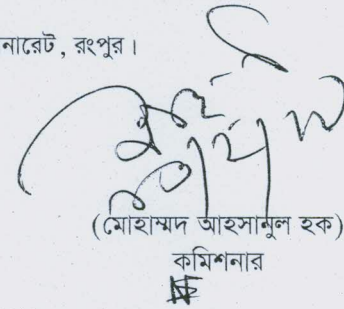 নারেট, রংপুর।
(মোহাম্মদ আহসানুল হক)
কমিশনার